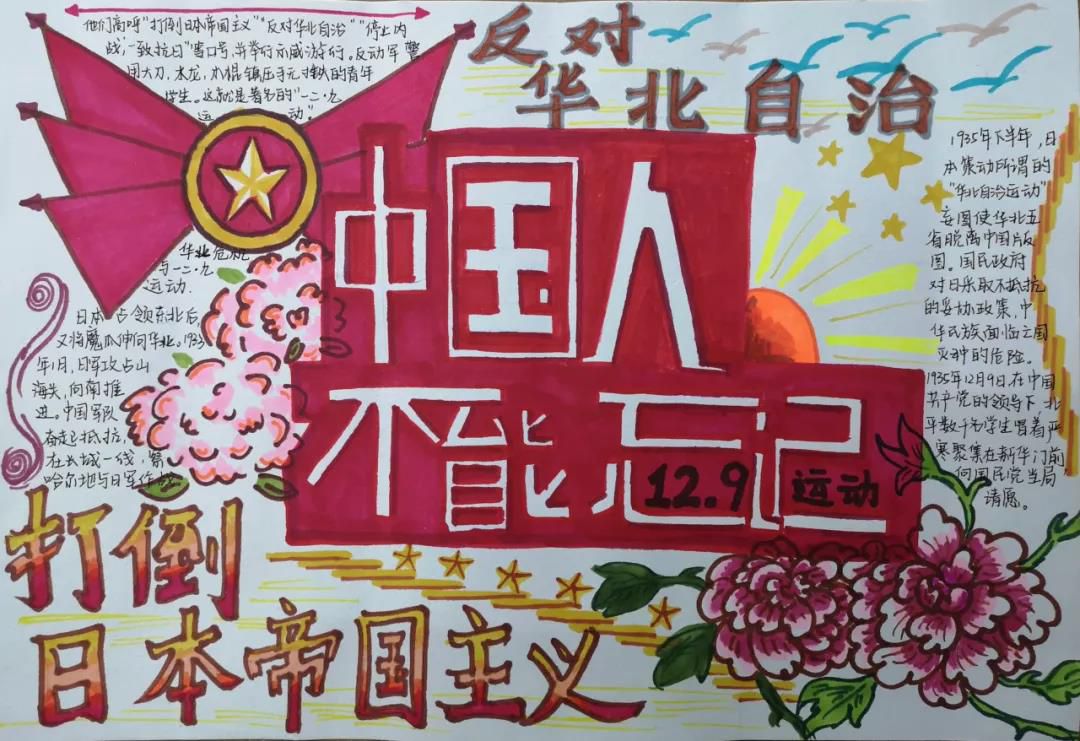 他们高呼"打倒日本帝国主义""反对华北自治""停止内
战,一致抗日"等口号,并举行示威游行。反动军警
用大刀,水龙,木棍镇压手无寸铁的青年
学生。这就是著名的"一二·九
运动"。
反对
华北自治
中国人
不能忘记
12.9运动
华北危机
与一二·九
运动.
日本占领东北后,
又将魔爪伸向华北。1933
年1月,日军攻占山
海关,向南推
进。中国军队
奋起抵抗,
在长城一线,察
哈尔地与日军作战
1935年下半年,日
本策动所谓的
"华北自治运动"
妄图使华北五
省脱离中国版
图。国民政府
对日采取不抵抗
的妥协政策,中
华民族面临亡国
灭种的危险。
1935年12月9日,在中国
共产党的领导下,北
平数千名学生冒着严
寒聚集在新华门前
向国民党当局
请愿。
打倒
日本帝国主义